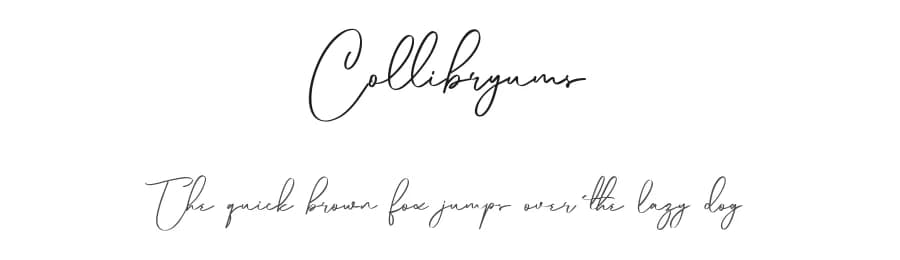 Collibryums
The quick brown fox jumps over the lazy dog